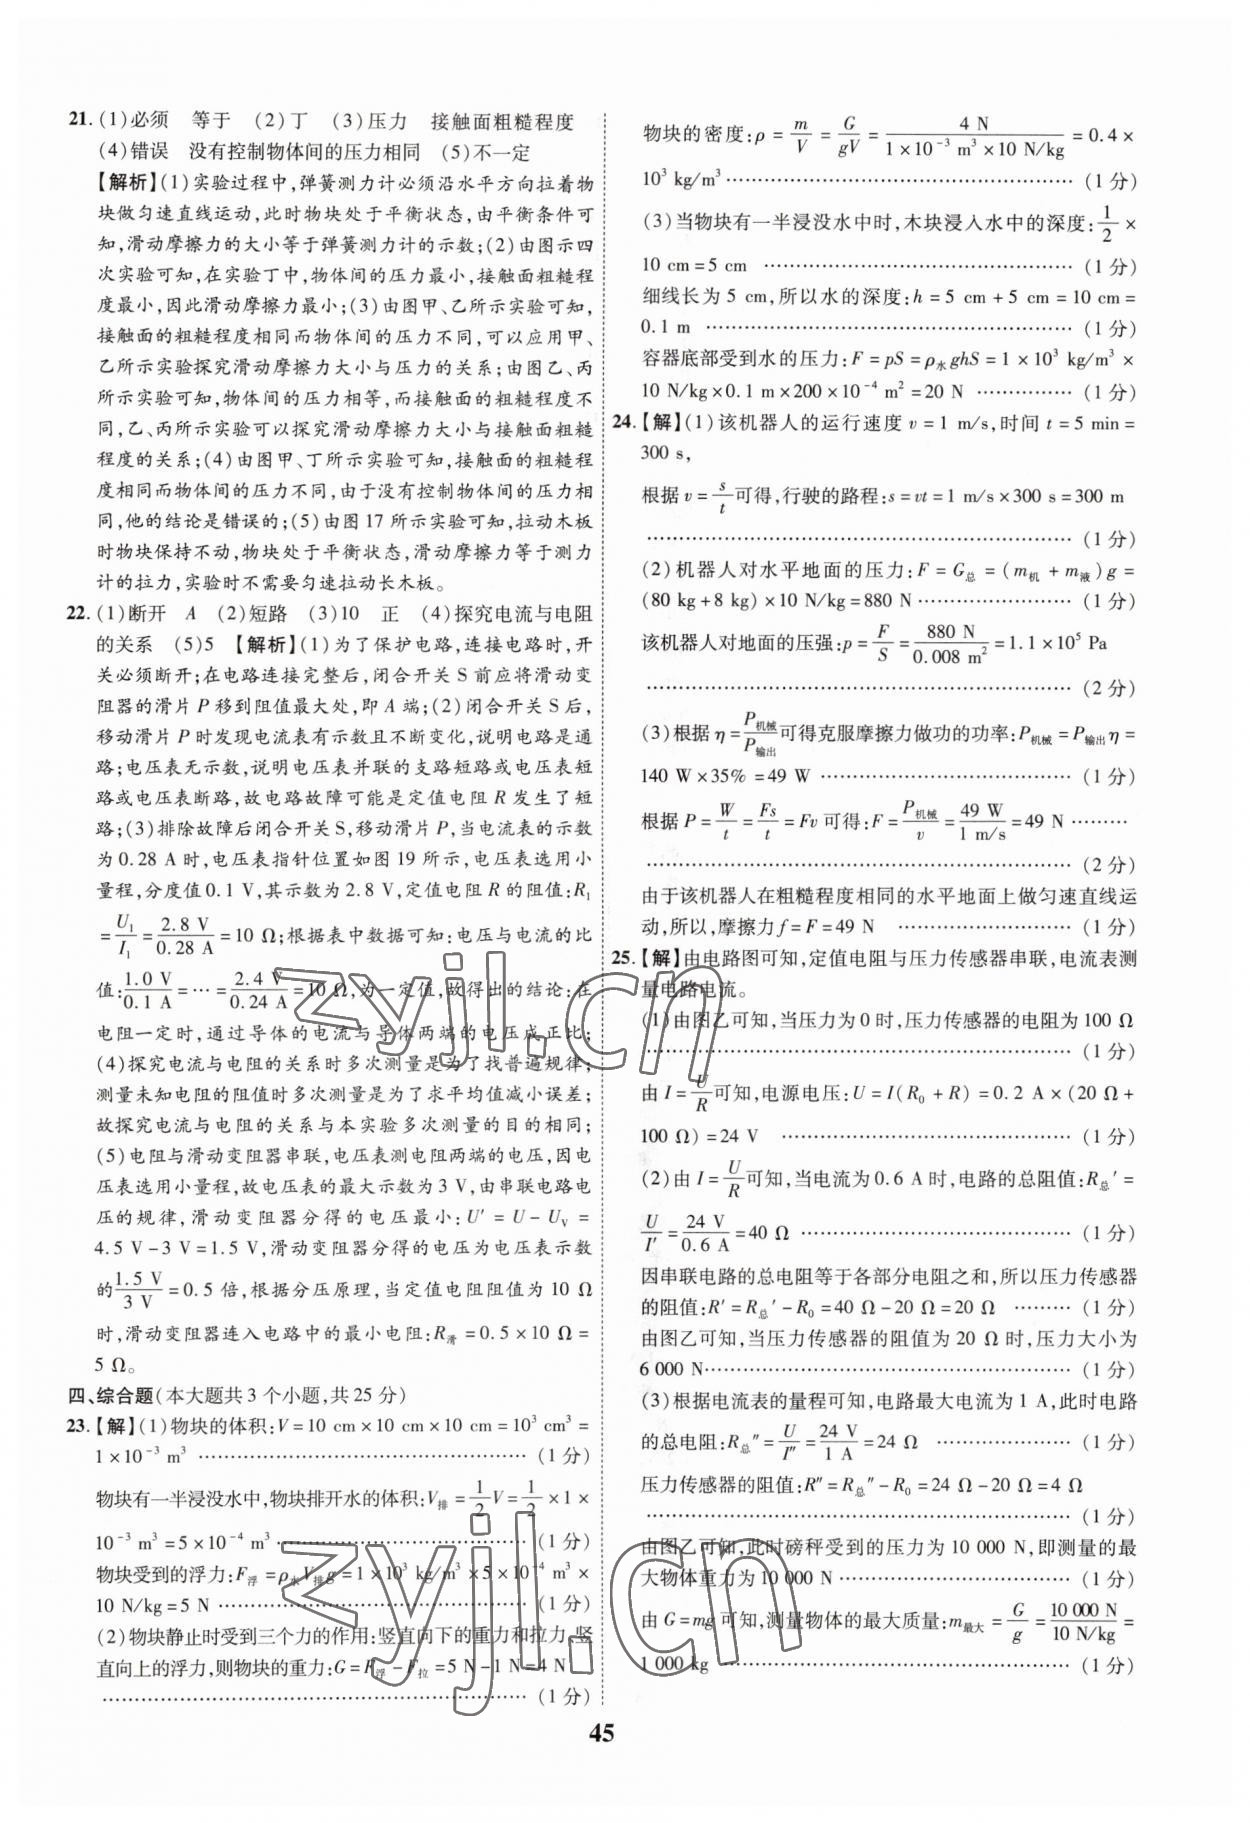 21. (1)必须　等于　(2)丁　(3)压力　接触面粗糙程度
(4)错误　没有控制物体间的压力相同　(5)不一定
【解析】(1)实验过程中,弹簧测力计必须沿水平方向拉着物
块做匀速直线运动,此时物块处于平衡状态,由平衡条件可
知,滑动摩擦力的大小等于弹簧测力计的示数;(2)由图示四
次实验可知,在实验丁中,物体间的压力最小,接触面粗糙程
度最小,因此滑动摩擦力最小;(3)由图甲、乙所示实验可知,
接触面的粗糙程度相同而物体间的压力不同,可以应用甲、
乙所示实验探究滑动摩擦力大小与压力的关系;由图乙、丙
所示实验可知,物体间的压力相等,而接触面的粗糙程度不
同,乙、丙所示实验可以探究滑动摩擦力大小与接触面粗糙
程度的关系;(4)由图甲、丁所示实验可知,接触面的粗糙程
度相同而物体间的压力不同,由于没有控制物体间的压力相
同,他的结论是错误的;(5)由图 17 所示实验可知,拉动木板
时物块保持不动,物块处于平衡状态,滑动摩擦力等于测力
计的拉力,实验时不需要匀速拉动长木板。
22. (1)断开　A　(2)短路　(3)10　正　(4)探究电流与电阻
的关系　(5)5　【解析】(1)为了保护电路,连接电路时,开
关必须断开;在电路连接完整后,闭合开关 S 前应将滑动变
阻器的滑片 P 移到阻值最大处,即 A 端;(2)闭合开关 S 后,
移动滑片 P 时发现电流表有示数且不断变化,说明电路是通
路;电压表无示数,说明电压表并联的支路短路或电压表短
路或电压表断路,故电路故障可能是定值电阻 R 发生了短
路;(3)排除故障后闭合开关 S,移动滑片 P,当电流表的示数
为 0.28 A 时,电压表指针位置如图 19 所示,电压表选用小
量程,分度值 0.1 V,其示数为 2.8 V,定值电阻 R 的阻值:R₁
=U₁/I₁=2.8 V/0.28 A=10 Ω;根据表中数据可知:电压与电流的比
值:1.0 V/0.1 A=…=2.4 V/0.24 A=10 Ω,为一定值,故得出的结论:在
电阻一定时,通过导体的电流与导体两端的电压成正比;
(4)探究电流与电阻的关系时多次测量是为了找普遍规律;
测量未知电阻的阻值时多次测量是为了求平均值减小误差;
故探究电流与电阻的关系与本实验多次测量的目的相同;
(5)电阻与滑动变阻器串联,电压表测电阻两端的电压,因电
压表选用小量程,故电压表的最大示数为 3 V,由串联电路电
压的规律,滑动变阻器分得的电压最小:U′=U-U_V=
4.5 V-3 V=1.5 V,滑动变阻器分得的电压为电压表示数
的1.5 V/3 V=0.5 倍,根据分压原理,当定值电阻阻值为 10 Ω
时,滑动变阻器连入电路中的最小电阻:R滑=0.5×10 Ω=
5 Ω。
四、综合题(本大题共 3 个小题,共 25 分)
23.【解】(1)物块的体积:V=10 cm×10 cm×10 cm=10³ cm³=
1×10⁻³ m³ …… (1 分)
物块有一半浸没水中,物块排开水的体积:V排=1/2V=1/2×1×
10⁻³ m³=5×10⁻⁴ m³ …… (1 分)
物块受到的浮力:F浮=ρ水V排g=1×10³ kg/m³×5×10⁻⁴ m³×
10 N/kg=5 N …… (1 分)
(2)物块静止时受到三个力的作用:竖直向下的重力和拉力,竖
直向上的浮力,则物块的重力:G=F浮-F拉=5 N-1 N=4 N
…… (1 分)
物块的密度:ρ=m/V=G/gV=4 N/(1×10⁻³ m³×10 N/kg)=0.4×
10³ kg/m³ …… (1 分)
(3)当物块有一半浸没水中时,木块浸入水中的深度:1/2×
10 cm=5 cm …… (1 分)
细线长为 5 cm,所以水的深度:h=5 cm+5 cm=10 cm=
0.1 m …… (1 分)
容器底部受到水的压力:F=pS=ρ水ghS=1×10³ kg/m³×
10 N/kg×0.1 m×200×10⁻⁴ m²=20 N …… (1 分)
24.【解】(1)该机器人的运行速度 v=1 m/s,时间 t=5 min=
300 s,
根据 v=s/t可得,行驶的路程:s=vt=1 m/s×300 s=300 m
…… (1 分)
(2)机器人对水平地面的压力:F=G总=(m机+m液)g=
(80 kg+8 kg)×10 N/kg=880 N …… (1 分)
该机器人对地面的压强:p=F/S=880 N/0.008 m²=1.1×10⁵ Pa
…… (2 分)
(3)根据 η=P机械/P输出可得克服摩擦力做功的功率:P机械=P输出η=
140 W×35%=49 W …… (1 分)
根据 P=W/t=Fs/t=Fv 可得:F=P机械/v=49 W/1 m/s=49 N ……
…… (2 分)
由于该机器人在粗糙程度相同的水平地面上做匀速直线运
动,所以,摩擦力 f=F=49 N …… (1 分)
25.【解】由电路图可知,定值电阻与压力传感器串联,电流表测
量电路电流。
(1)由图乙可知,当压力为 0 时,压力传感器的电阻为 100 Ω
…… (1 分)
由 I=U/R可知,电源电压:U=I(R₀+R)=0.2 A×(20 Ω+
100 Ω)=24 V …… (1 分)
(2)由 I=U/R可知,当电流为 0.6 A 时,电路的总阻值:R总′=
U/I′=24 V/0.6 A=40 Ω …… (1 分)
因串联电路的总电阻等于各部分电阻之和,所以压力传感器
的阻值:R′=R总′-R₀=40 Ω-20 Ω=20 Ω …… (1 分)
由图乙可知,当压力传感器的阻值为 20 Ω 时,压力大小为
6 000 N …… (1 分)
(3)根据电流表的量程可知,电路最大电流为 1 A,此时电路
的总电阻:R总″=U/I″=24 V/1 A=24 Ω …… (1 分)
压力传感器的阻值:R″=R总″-R₀=24 Ω-20 Ω=4 Ω
…… (1 分)
由图乙可知,此时磅秤受到的压力为 10 000 N,即测量的最
大物体重力为 10 000 N …… (1 分)
由 G=mg 可知,测量物体的最大质量:m最大=G/g=10 000 N/10 N/kg=
1 000 kg …… (1 分)
45
zyjl.cn
zyjl.cn